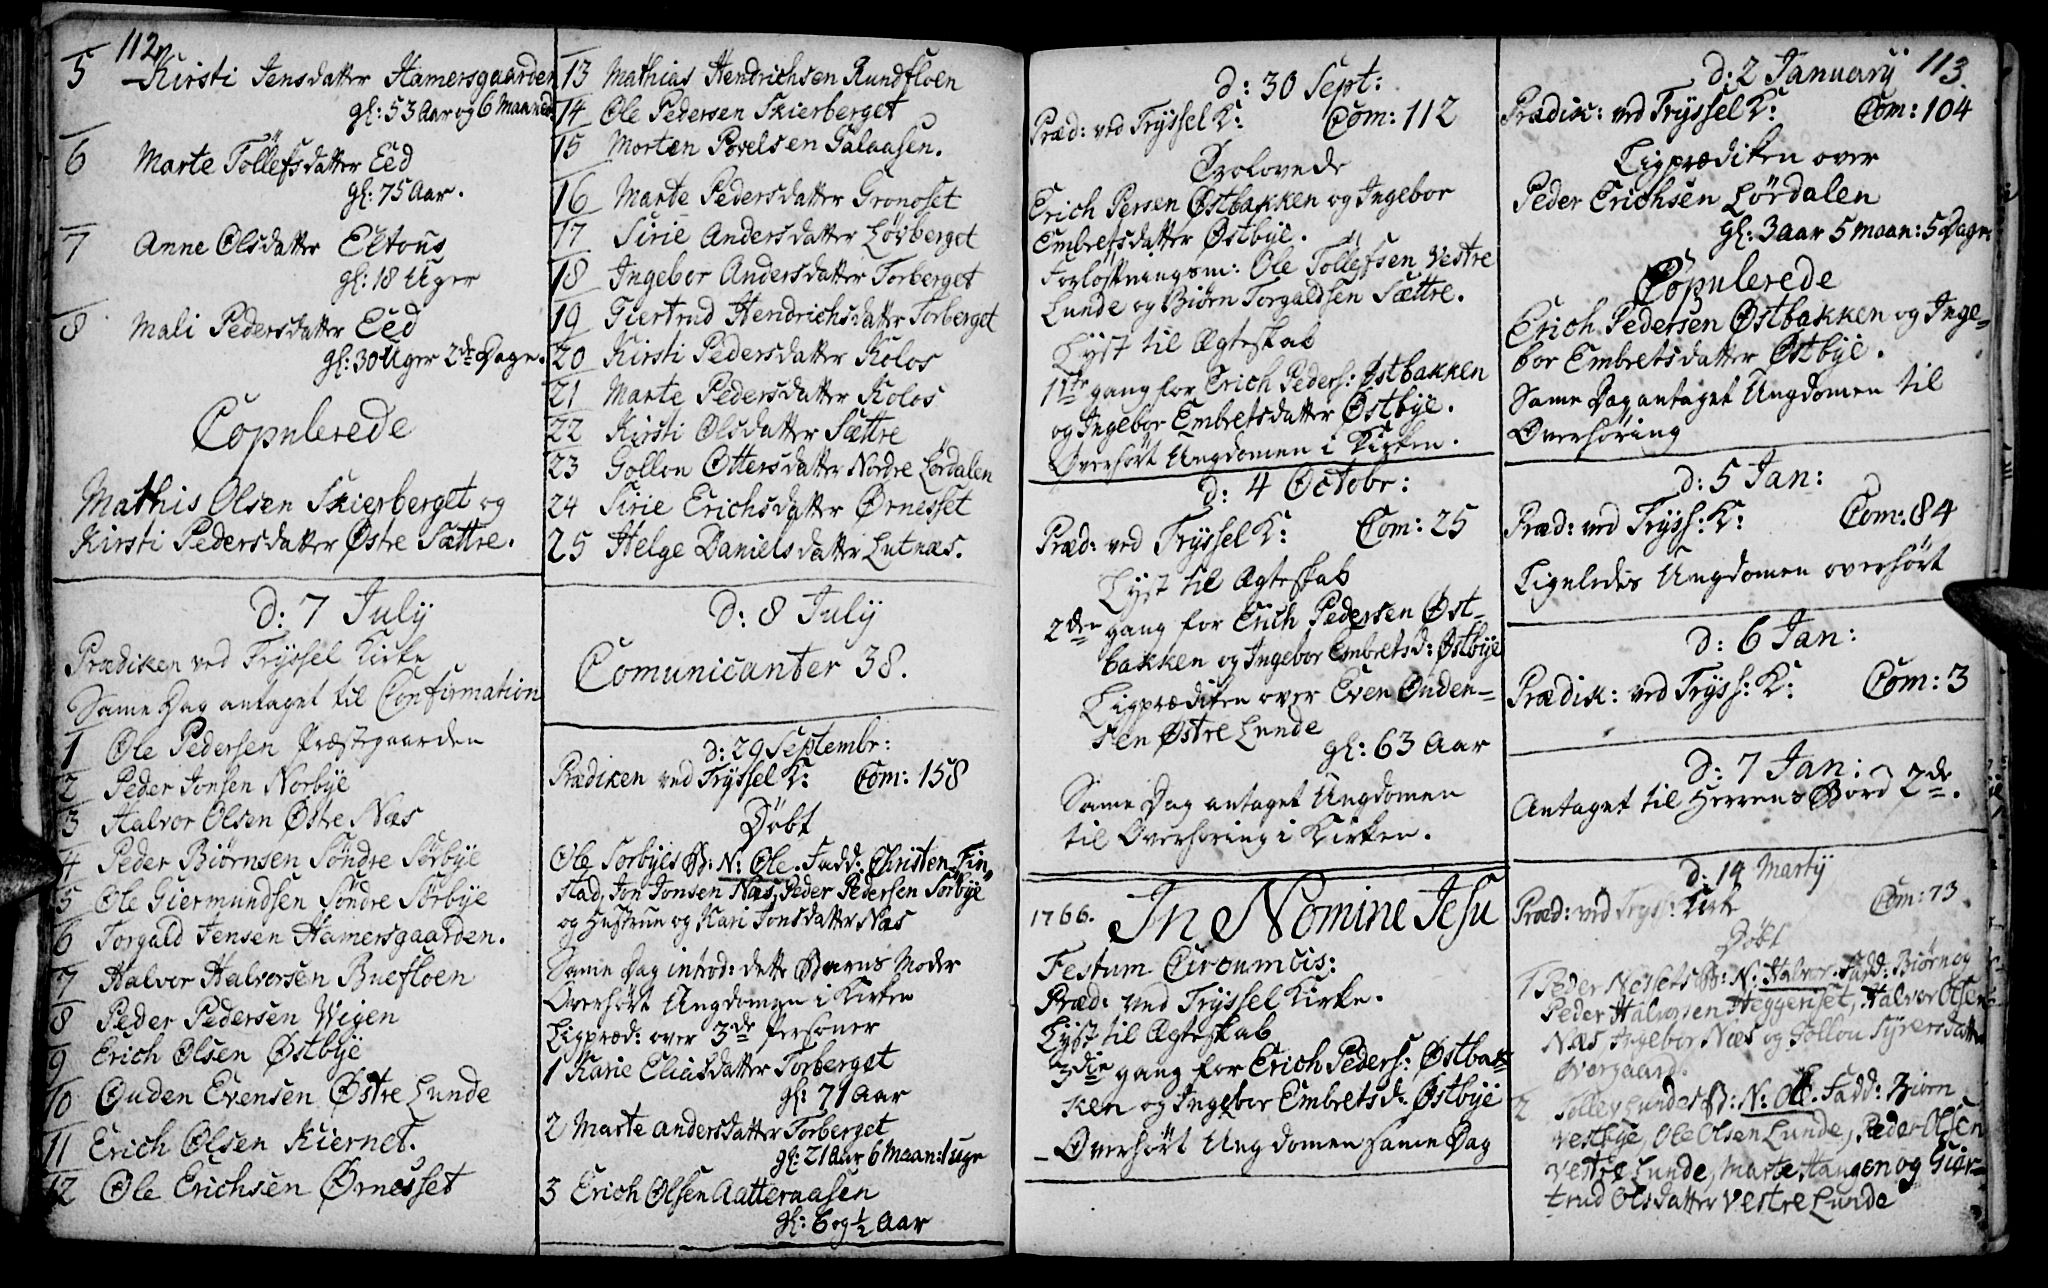 112
5 Kirsti Jensdatter Hamersgaarden
gl: 53 Aar og 6 Maaneder
6 Marte Tollefsdatter Eed
gl: 75 Aar.
7 Anne Olsdatter Eltous
gl: 18 Uger
8 Mali Pedersdatter Eed
gl: 30 Uger 2de Dage.
Copulerede
Mathis Olsen Skierberget og
Kirsti Pedersdatter Østre Sættre.
D: 7 July
Prædiken ved Tryssel Kirke
Same Dag antaget til Confirmation
1 Ole Pedersen Præstegaarden
2 Peder Jonsen Norbye
3 Halvor Olsen Østre Næs
4 Peder Biørnsen Søndre Sørbye
5 Ole Giermundsen Søndre Sørbye
6 Torgald Jensen Hamersgaarden.
7 Halvor Halvorsen Buefloen
8 Peder Pedersen Wigen
9 Erich Olsen Østbye
10 Ouden Evensen Østre Lunde
11 Erich Olsen Kiernet.
12 Ole Erichsen Ørnesset
13 Mathias Hendrichsen Rundfloen
14 Ole Pedersen Skierberget
15 Morten Povelsen Galaasen.
16 Marte Pedersdatter Gronoset
17 Sirie Andersdatter Løvberget
18 Ingebor Andersdatter Torberget
19 Giertrud Hendrichsdatter Torberget
20 Kirsti Pedersdatter Kolos
21 Marte Pedersdatter Kolos
22 Kirsti Olsdatter Sættre
23 Gollon Ottersdatter Nordre Lørdalen
24 Sirie Erichsdatter Ørnesset
25 Helge Danielsdatter Lutnæs.
D: 8 July
Comunicanter 38.
d: 29 Septembr:
Prædiken ved Tryssel K: Com: 158
Døbt
Ole Sorbyes B: N: Ole. Fadd: Christen Fin-
stad, Jon Jonsen Næs, Peder Pedersen Sorbye
og Hustrue og Kari Jonsdatter Næs
Same Dag introd: dette Barns Moder
Overhørt Ungdomen i Kirken
Ligpræd: over 3de Personer
1 Karie Eliasdatter Torberget
gl: 71 Aar
2 Marte andersdatter Torberget
gl: 21 Aar 6 Maan: 1 uge
3 Erich Olsen Aatteraasen
gl: 6 og 1/2 Aar
d: 30 Sept:
Præd: ved Tryssel K: Com: 112
Trolovede
Erich Persen Østbakken og Ingebor
Embretsdatter Østbye.
Forlovtningsm: Ole Tollefsen Vestre
Lunde og Biørn Torgaldsen Sættre.
Lyst til Ægteskab
1te gang for Erich Peders: Østbakken
og Ingebor Embretsdatter Østbye.
Overhørt Ungdomen i Kirken.
d: 4 Octobr:
Præd: ved Tryssel K: Com: 25
Lyst til Ægteskab
2den gang for Erich Pedersen Øst-
bakken og Ingebor Embretsd: Østbye
Ligprædiken over Even Ouden-
sen Østre Lunde
gl: 63 Aar
Same Dag antaget Ungdomen
til Overhøring i Kirken.
1766. In Nomine Jesu
Festum Circumcis:
Præd: ved Tryssel Kirke.
Lyst til Ægteskab
3die gang for Erich Peders: Østbak-
ken og Ingebor Embretsd: Østbye
- Overhørt Ungdomen same Dag
113.
d: 2 January
Prædik: ved Tryssel K: Com: 104
Ligprædiken over
Peder Erichsen Lørdalen
gl: 3 aar 5 maan: 5 Dage
Copulerede
Erich Pedersen Østbakken og Inge-
bor Embretsdatter Østbye.
Same Dag antaget Ungdomen til
Overhøring
d: 5 Jan:
Præd: ved Tryss: K: Com: 84
Ligeledes Ungdomen overhørt
d: 6 Jan:
Prædik: ved Tryss: K: Com: 3
d: 7 Jan:
Antaget til Herrens Bord 2de.
d: 14 Martij
Præd: ved Tryss: Kirk Com: 73
Døbt
1 Peder B: N: Halvor. Fadd: Biørn og
Peder Halvorsen Heggeriset, Halvor Olsen
Næs Ingebor Næs og Gollou Syversdatter
Overgaard.
2 Tollev Lundes B: N: Ole. Fadd: Biørn
Vestbye, Ole Olsen Lunde, Peder Olsen
Vestre Lunde, Marte Haugen og Giør-
trud Olsdatter Vestre Lunde